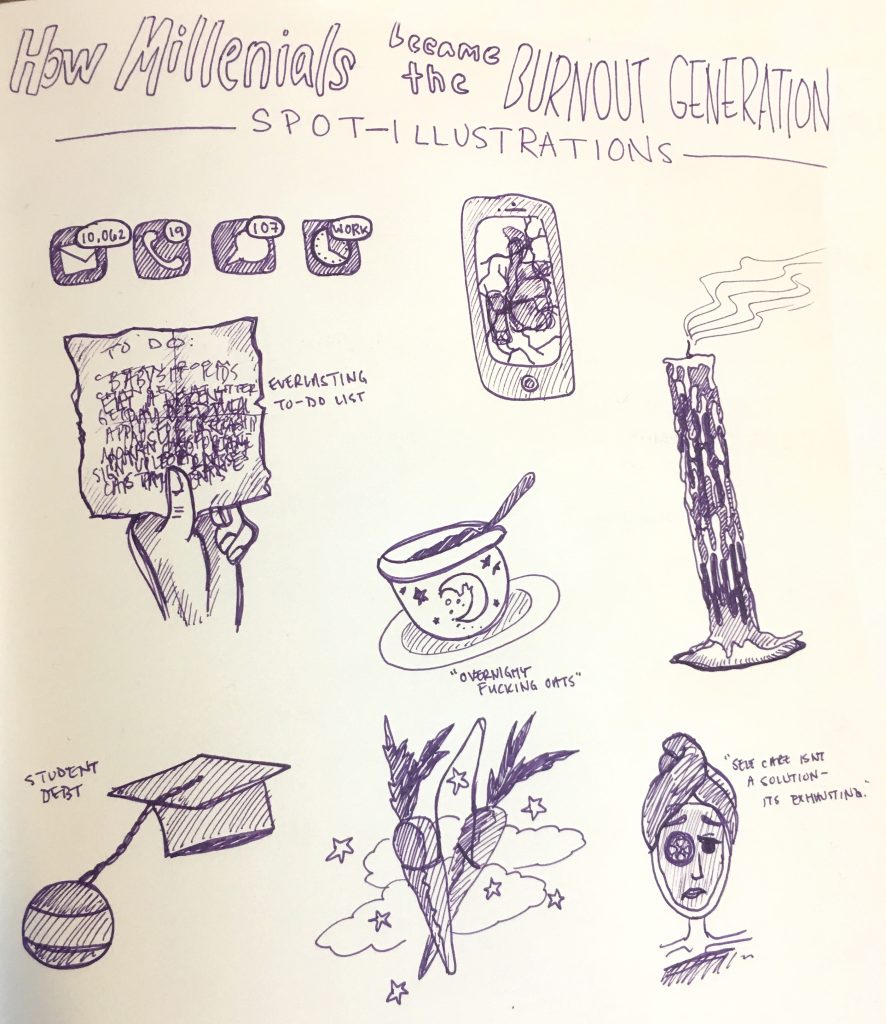 How Millenials became the BURNOUT GENERATION
SPOT-ILLUSTRATIONS
10,062
19
107
WORK
TO DO:
BABYSIT KIDS
EAT A DECENT
EVERLASTING
TO-DO LIST
"OVERNIGHT
FUCKING OATS"
STUDENT
DEBT
"SELF CARE ISNT
A SOLUTION-
ITS EXHAUSTING."